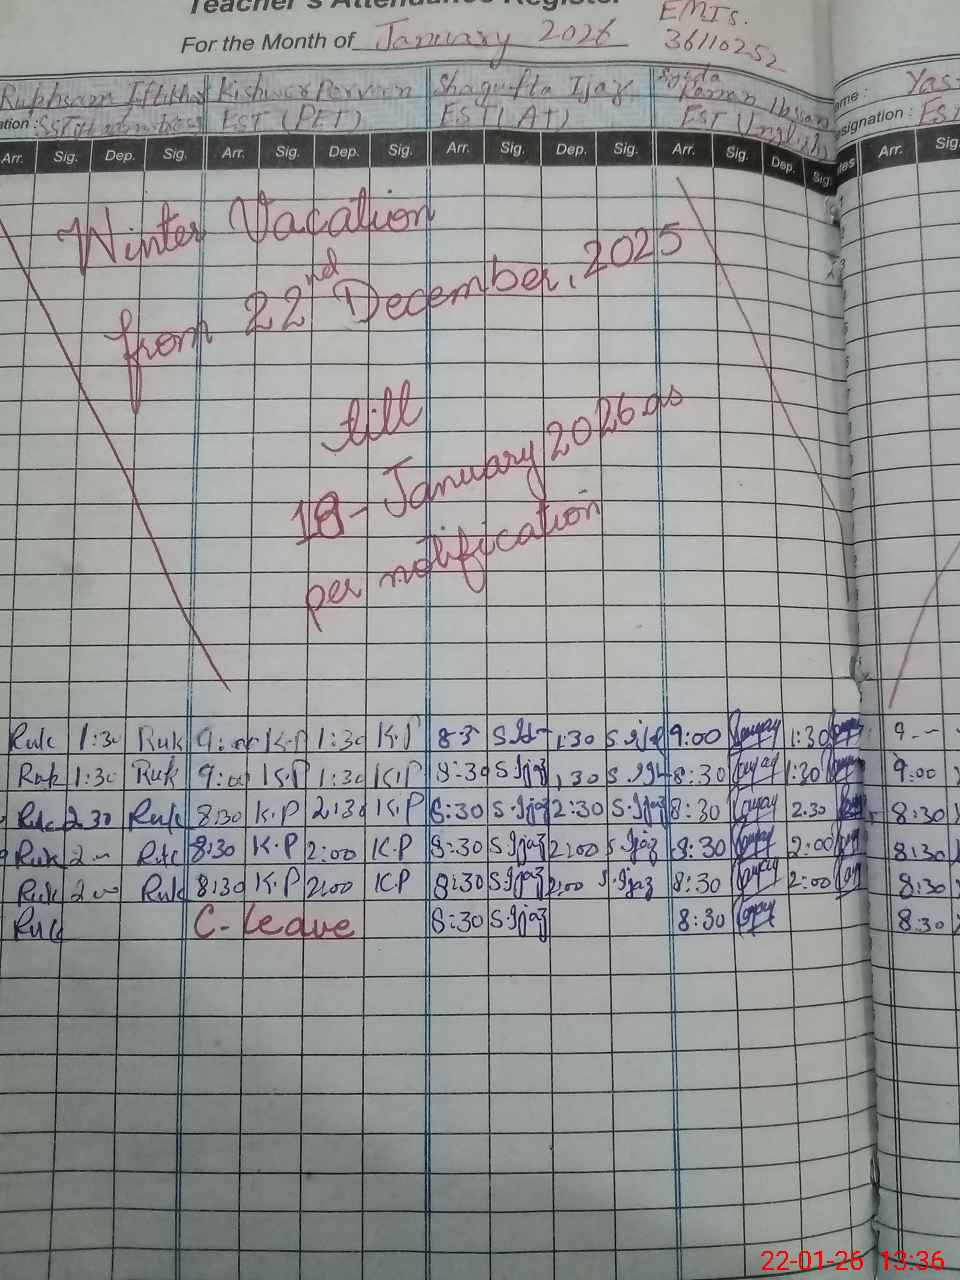 Teacher's Attendance Register
EMIS.
For the Month of January 2026 36110252
Kishwer Parveen Shagufta Ijaz Syeda Yas
ation: EST (PET) EST (AT) EST English ame: esignation: EST
Arr. Sig. Dep. Sig. Arr. Sig. Dep. Sig. Arr. Sig. Dep. Sig. Arr. Sig. Dep. Sig. Arr. Sig.
Winter Vacation
from 22nd December, 2025
till
18-January 2026 as
per notification
Ruk 1:30 Ruk 9:00 K.P 1:30 K.P 8-3 1:30 9:00 1:30 9--
Ruk 1:30 Ruk 9:00 K.P 1:30 K.P 8:30 S.Ijaz 1:30 8:30 1:30 9:00
Ruk 2.30 Ruk 8:30 K.P 2:30 K.P 8:30 S.Ijaz 2:30 S.Ijaz 8:30 2.30 8:30
Ruk 2 Ruk 8:30 K.P 2:00 K.P 8:30 S.Ijaz 2:00 S.Ijaz 8:30 2:00 8:30
Ruk 2 Ruk 8:30 K.P 2:00 K.P 8:30 S.Ijaz 2:00 S.Ijaz 8:30 2:00 8:30
Ruk C-Leave 8:30 S.Ijaz 8:30 8.30
22-01-26 13:36